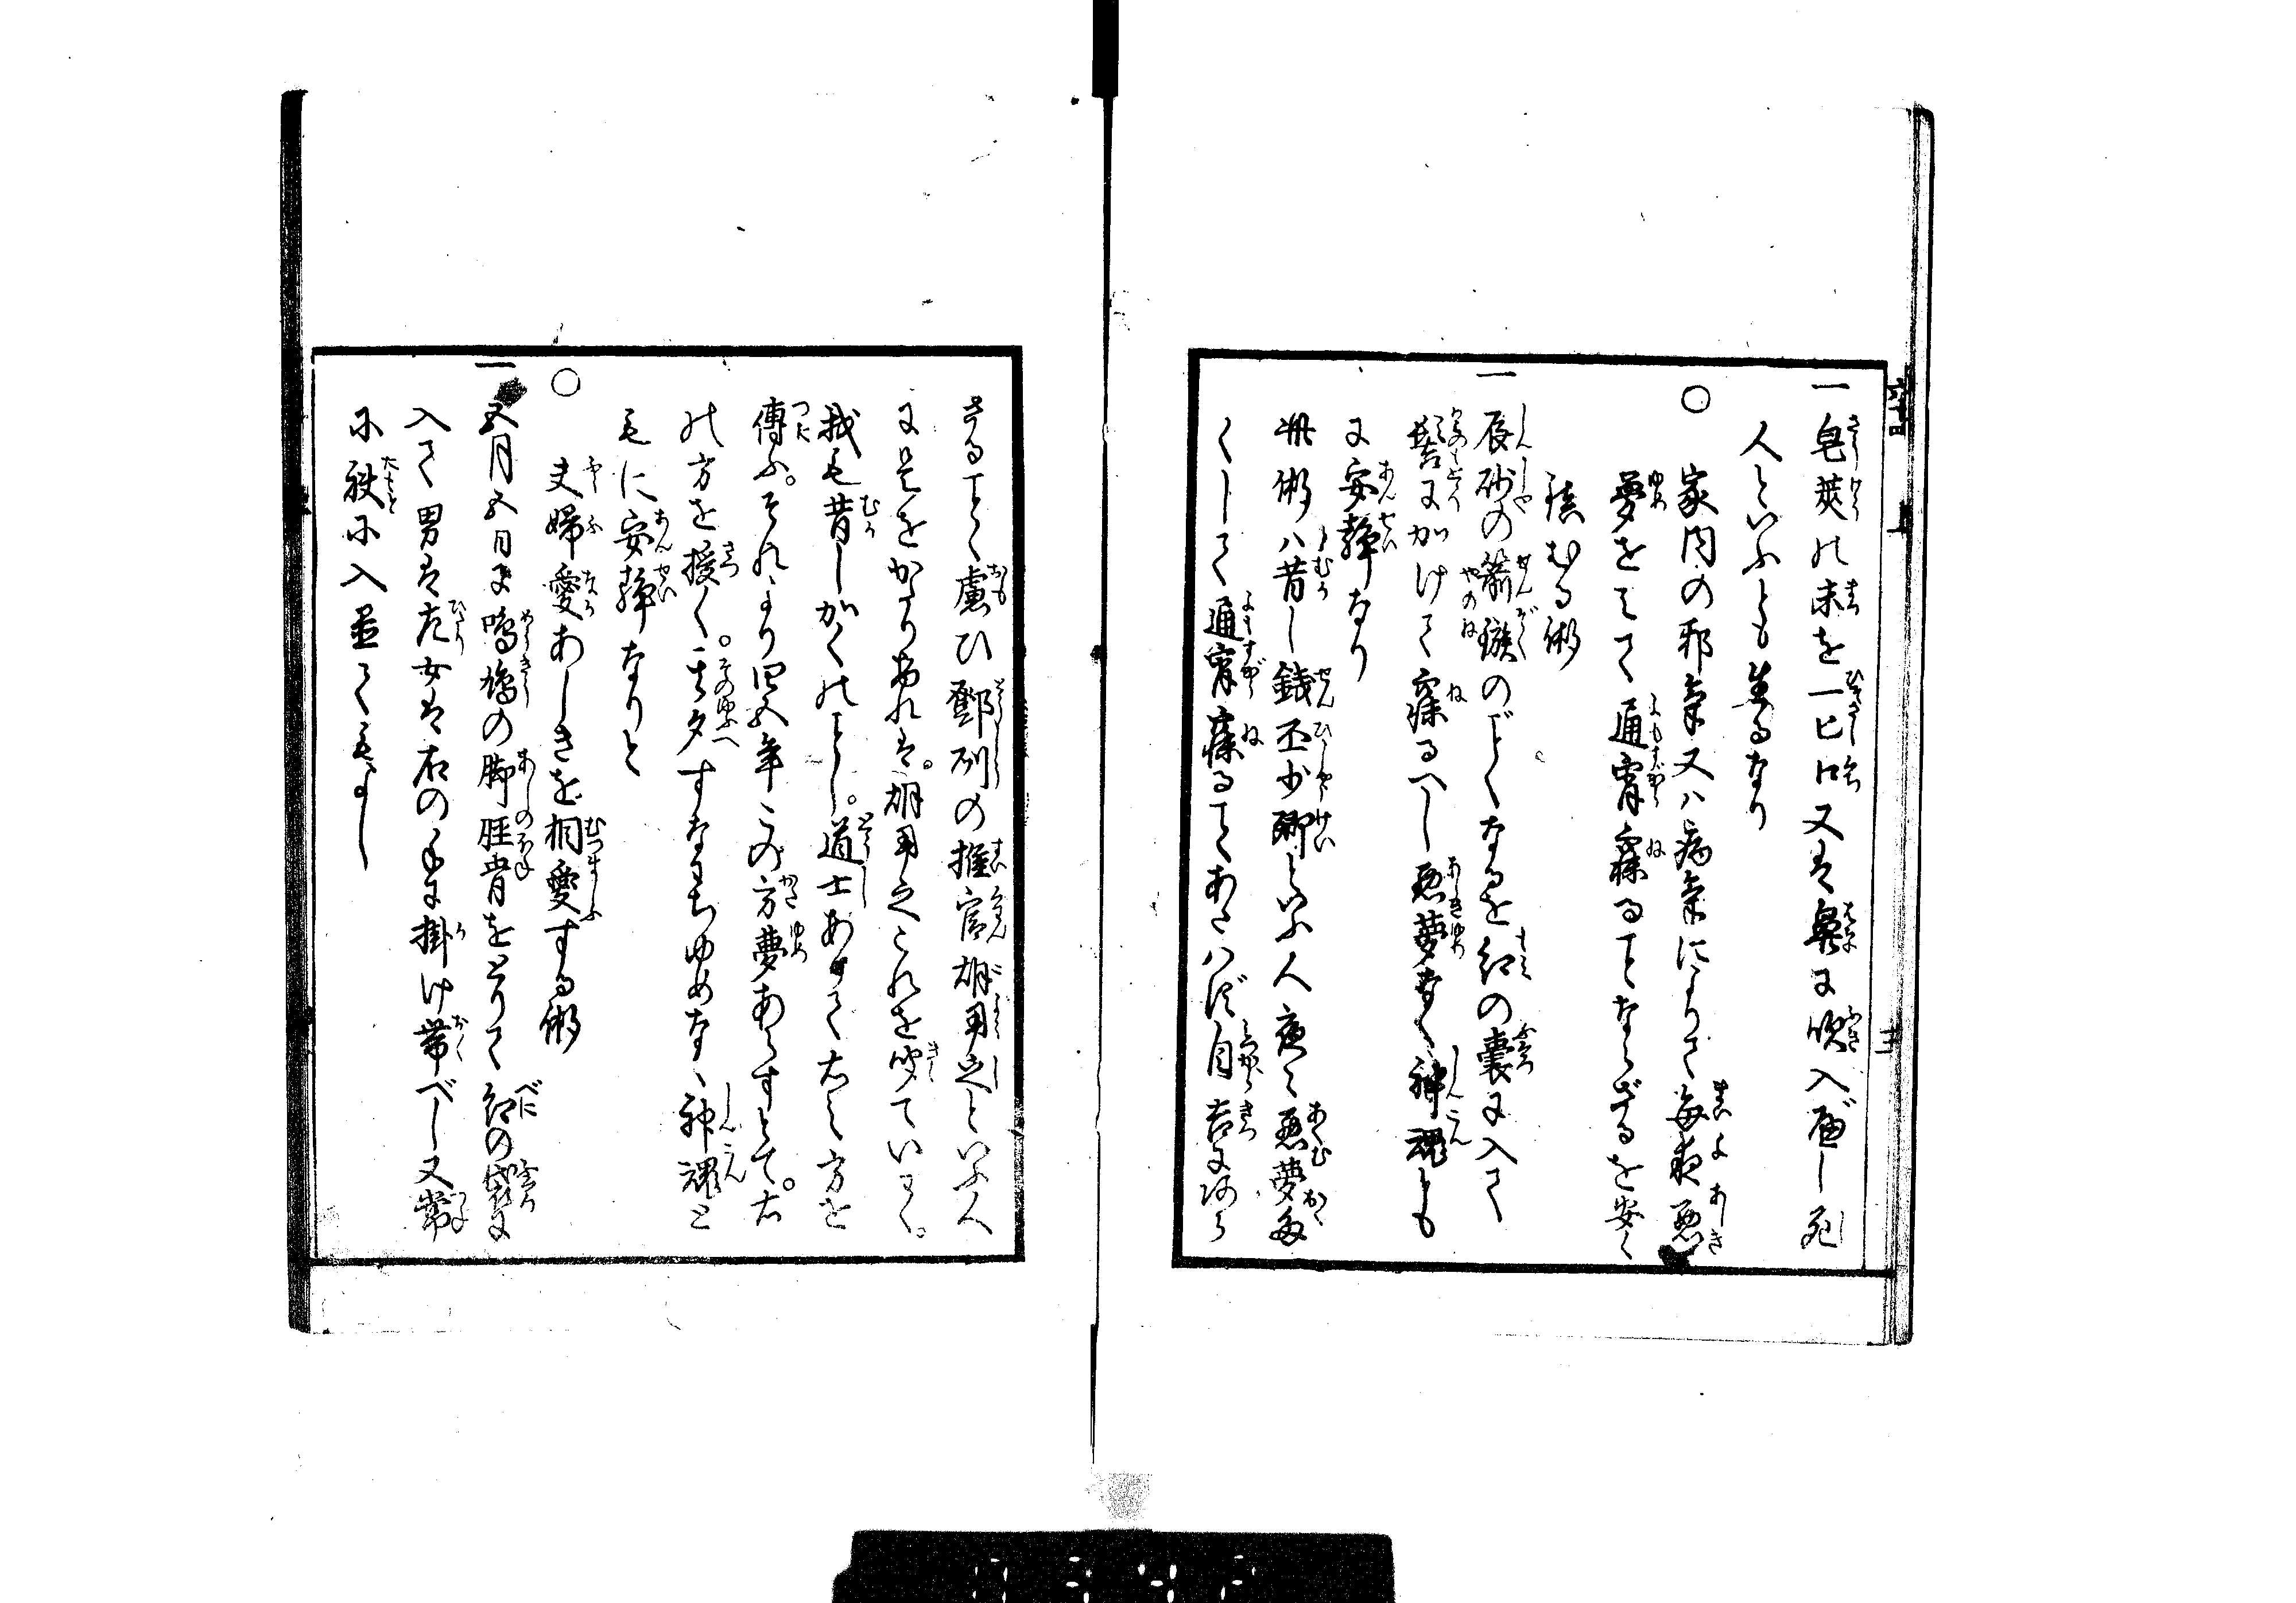 一皂莢の末を一匕口又は鼻に吹入べし死
人といふとも生るなり
○家内の邪氣又ハ病氣によりて毎夜悪
夢をみて通宵寐ることならざるを安く
寐むる術
一辰砂の箭鏃のごとくなるを紅の嚢に入て
髻にかけて寐るへし悪夢なく神魂とも
に安静なり
此術ハ昔し銭丕少卿といふ人夜々悪夢多
くして通宵寐ることあたハず自吉にあら
さること慮ひ鄧列の推官胡用之といふ人
に是をかたりあれは。胡用之これを聞ていはく。
我も昔しかくのことし。道士ありて右之方を
傳ふ。それより四五年この方夢あらすとて。右
の方を授く。其夕すなわちゆめなく神魂と
もに安静なりと
○夫婦愛あしきを相愛する術
一五月五日に鳴鳩の脚脛骨をとりて紅の袋に
入て男は左女は右の手に掛け帯べし又常
に袂に入置くもよし